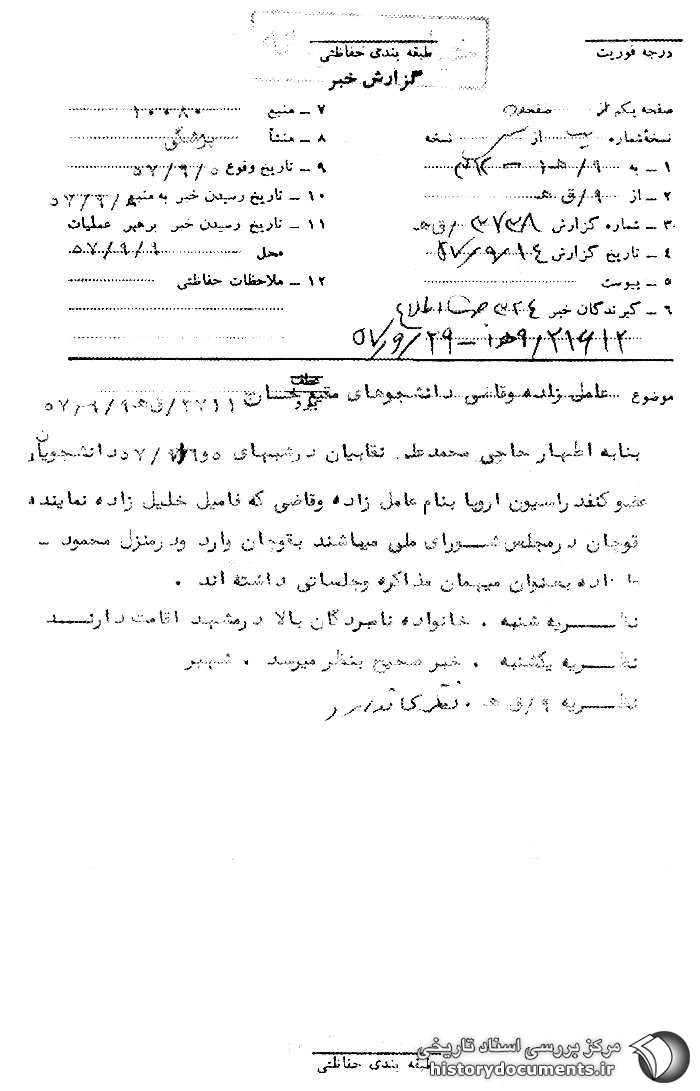 درجه فوریت
طبقه بندی حفاظتی
گزارش خبر
صفحه یکم از صفحه
نسخهٔ شماره از نسخه
۱ ـ به ۹/هـ۱
۲ ـ از ۹/ق هـ
۳ ـ شماره گزارش ۳۷۳۸/ق هـ
۴ ـ تاریخ گزارش ۵۷/۹/۱۴
۵ ـ پیوست
۶ ـ گیرندگان خبر ۳۲۴ جهت اطلاع
۷ ـ منبع ۱۰۰۸۰
۸ ـ منشأ
۹ ـ تاریخ وقوع ۵۷/۹/۵
۱۰ ـ تاریخ رسیدن خبر به منبع
۱۱ ـ تاریخ رسیدن خبر برهبر عملیات
محل ۵۷/۹/۹
۱۲ ـ ملاحظات حفاظتی
۵۷/۹/۲۹
موضوع عامل زاده وقاضی دانشجوهای مقیم
عطف
پیرو
۳۷۱۱/ق هـ
بنابه اظهار حاجی محمدعلی نقابیان درشبهای ۵و۵۷/۹/۶ دانشجویان
عضو کنفدراسیون اروپا بنام عامل زاده وقاضی که فامیل خلیل زاده نماینده
قوچان درمجلس شورای ملی میباشند بقوچان وارد ودرمنزل محمود ـ
زاده بعنوان میهمان مذاکره وجلساتی داشته اند .
نظریه شنبه . خانواده نامبردگان بالا درمشهد اقامت دارند
نظریه یکشنبه . خبر صحیح بنظر میرسد . شهیر
نظریه ۹/ق هـ .
طبقه بندی حفاظتی
مرکز بررسی اسناد تاریخی
historydocuments.ir